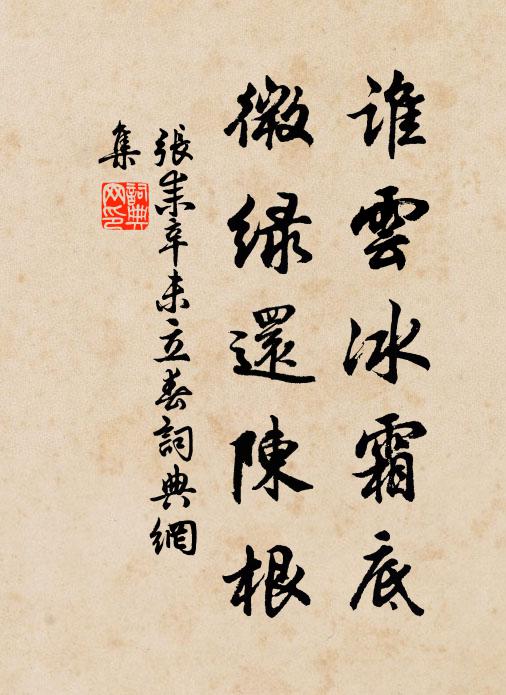 誰雲冰霜底
微綠還陳根
張耒辛未立春詞典網
集
詞典
网印